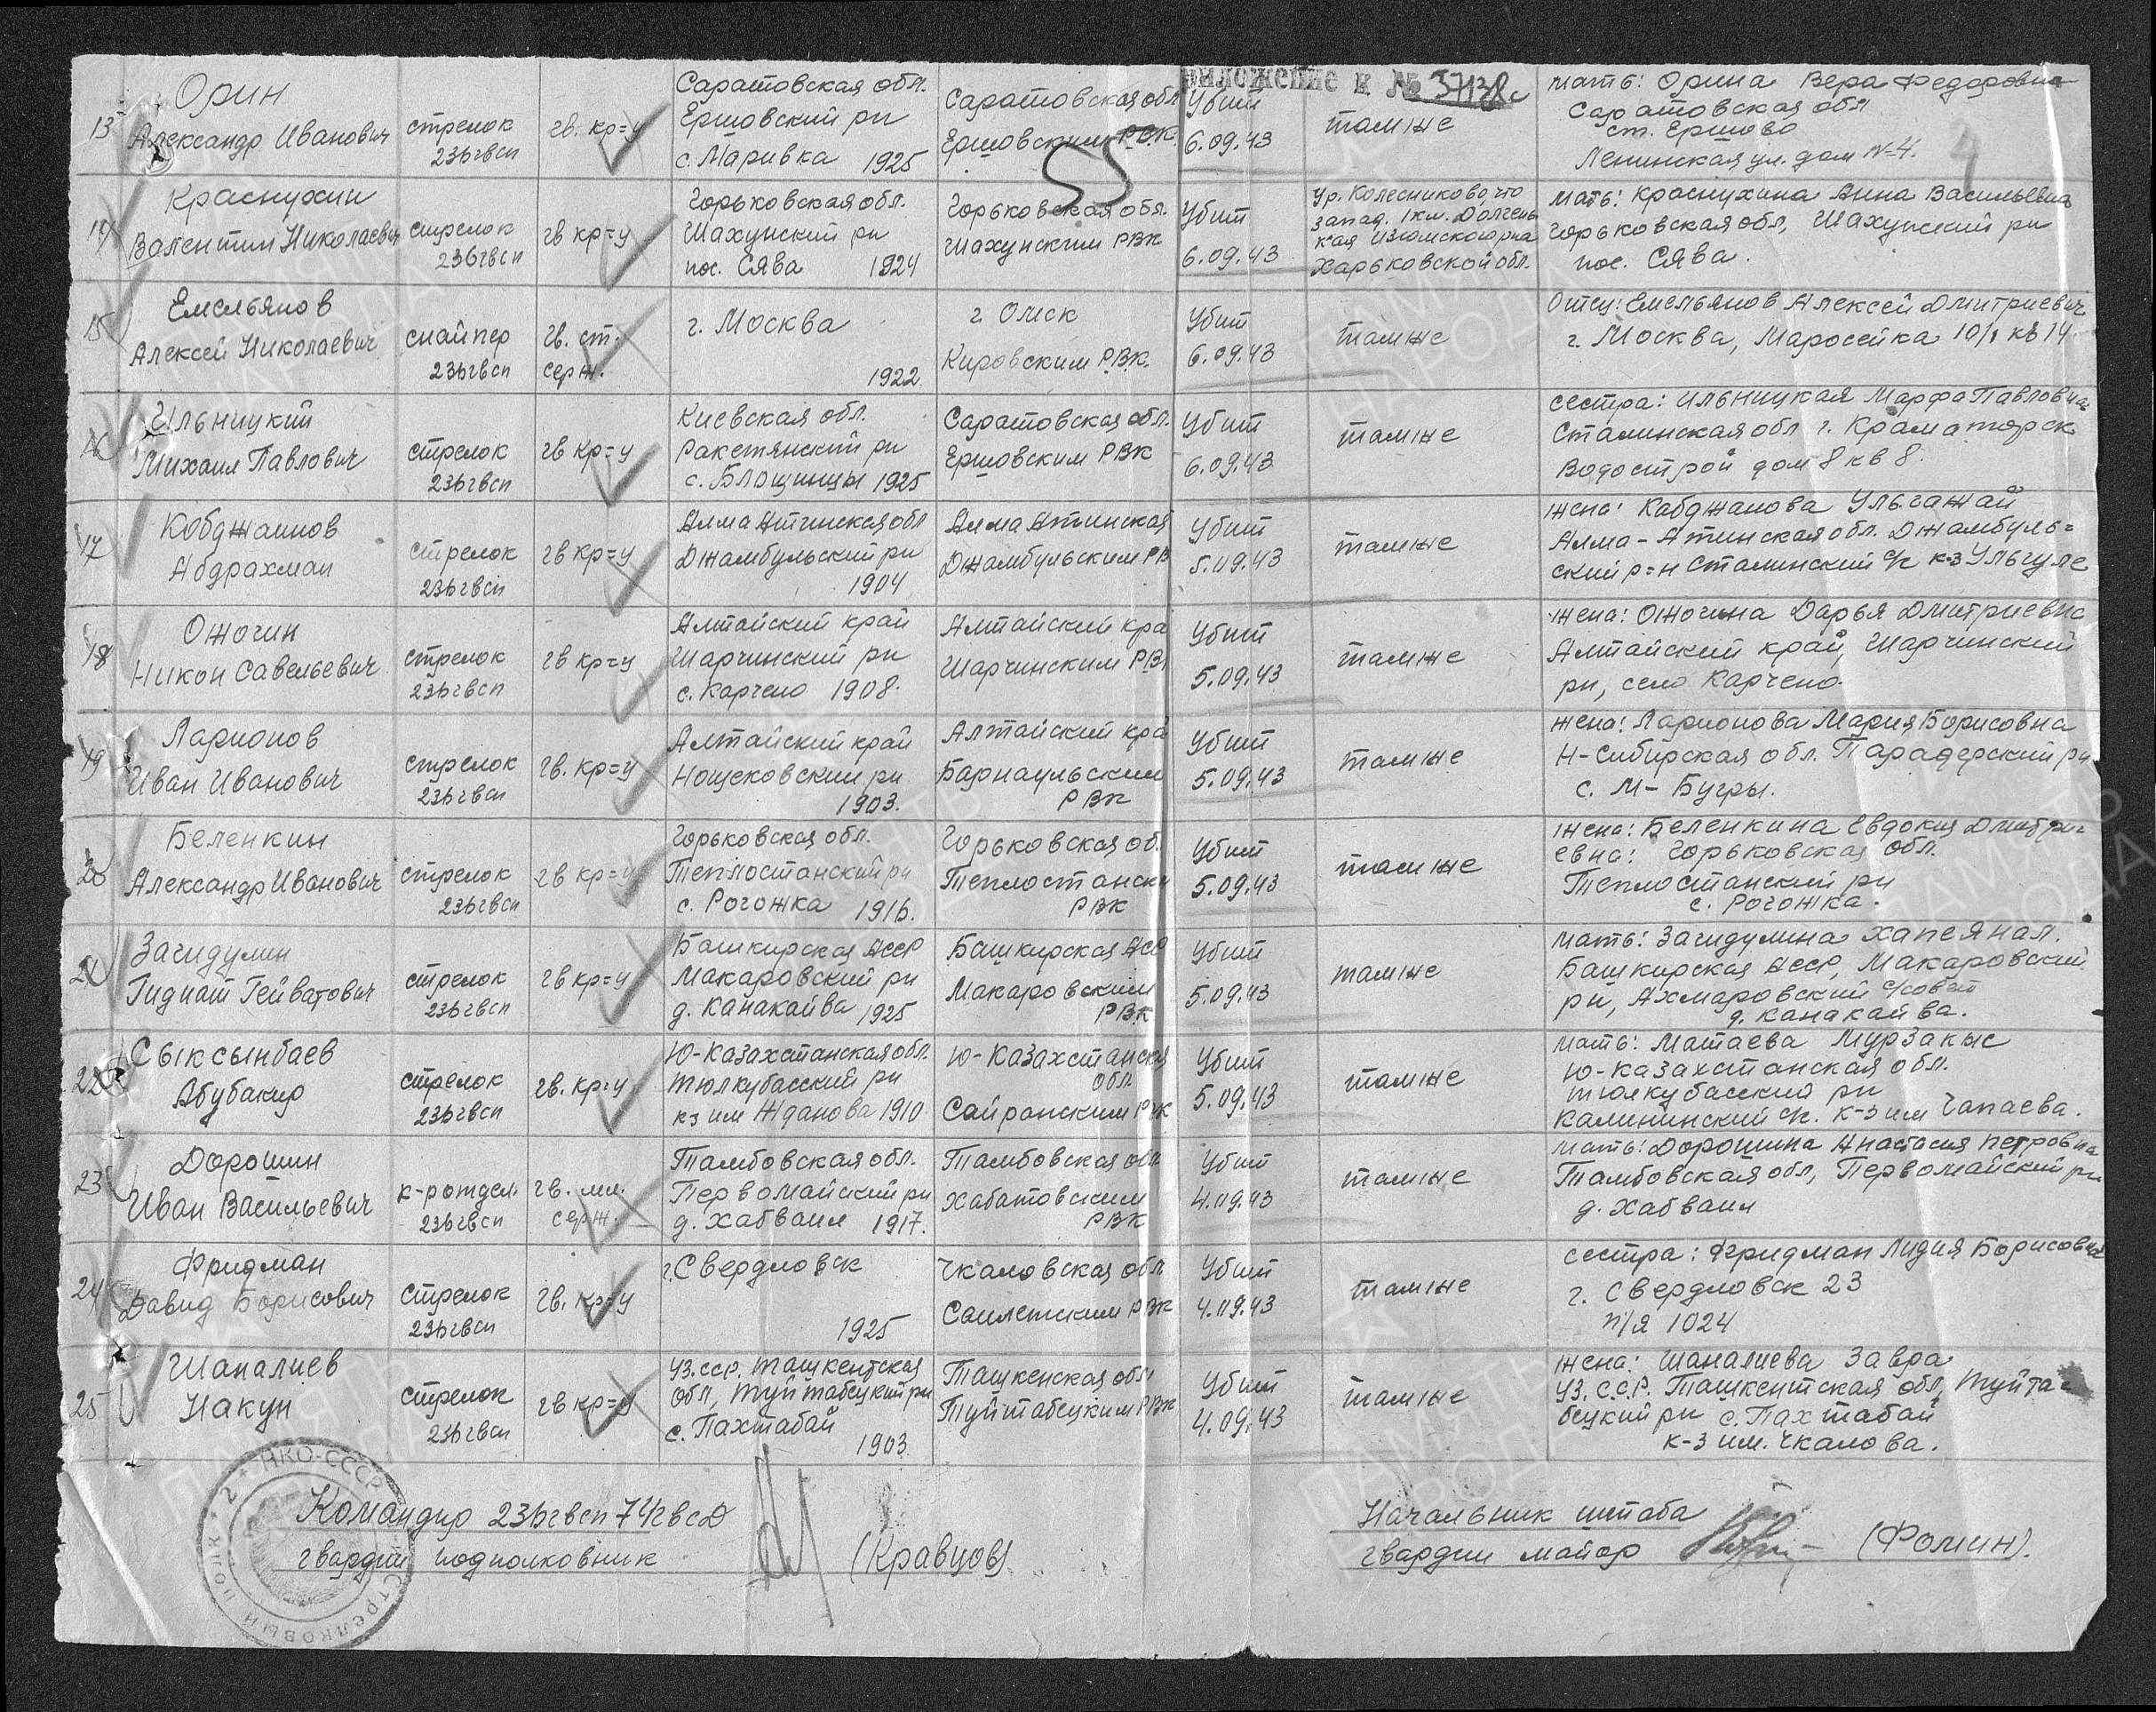 риложение к № 37138с
55
13
Орин
Александр Иванович
стрелок
236гвсп
гв. кр=ц
Саратовская обл.
Ершовский рн
с. Маривка 1925
Саратовская обл
Ершовским РВК
Убит
6.09.43
там же
мать: Орина Вера Федоровна
Саратовская обл
ст. Ершово
Ленинская ул. дом №4.
Краснухин
Валентин Николаевич
стрелок
236гвсп
гв кр=ц
Горьковская обл.
Шахунский рн
пос. Сява 1924
Горьковская обл.
Шахунским РВК
Убит
6.09.43
Ур. Колесниково, что
запад. 1км. Долгень
кая Изюмского рна
Харьковской обл.
мать: Краснухина Анна Васильевна
Горьковская обл, Шахунский рн
пос. Сява.
15
Емельянов
Алексей Николаевич
снайпер
236гвсп
гв. ст.
серж.
г. Москва
1922
г Омск
Кировским РВК.
Убит
6.09.43
там же
Отец: Емельянов Алексей Дмитриевич
г. Москва, Маросейка 10/1 кв 14.
16
Ильницкий
Михаил Павлович
стрелок
236гвсп
гв кр=ц
Киевская обл.
Ракетянский рн
с. Блощинцы 1925
Саратовская обл.
Ершовским РВК
Убит
6.09.43
там же
сестра: Ильницкая Марфа Павловна
Сталинская обл г. Краматорск
Водострой дом 8 кв 8.
17
Кобджанов
Абдрахман
стрелок
236гвсп
гв кр=ц
Алма Атинская обл
Джамбульский рн
1904
Алма Атинская
Джамбульским РВ
Убит
5.09.43
там же
жена: Кабджанова Ульгажай
Алма-Атинская обл. Джамбуль=
ский р=н Сталинский с/с к-з Ульгуле
18
Ожогин
Никон Савельевич
стрелок
236гвсп
гв кр=ц
Алтайский край
Шарчинский рн
с. Карчено 1908.
Алтайский кра
Шарчинским РВ
Убит
5.09.43
там же
жена: Ожогина Дарья Дмитриевна
Алтайский край, Шарчинский
рн, село Карчено.
19
Ларионов
Иван Иванович
стрелок
236гвсп
гв. кр=ц
Алтайский край
Нощековский рн
1903.
Алтайский кра
Барнаульским
РВК
Убит
5.09.43
там же
жена: Ларионова Мария Борисовна
Н-Сибирская обл. Парадерский рн
с. М-Бугры.
20
Беленкин
Александр Иванович
стрелок
236гвсп
гв кр=ц
Горьковская обл.
Теплостанский рн
с. Рогожка 1916.
Горьковская об.
Теплостански
РВК
Убит
5.09.43
там же
жена: Беленкина Евдокия Дмитри=
евна: Горьковская обл.
Теплостанский рн
с. Рогожка.
21
Загидулин
Гидиат Гейватович
стрелок
236гвсп
гв кр=ц
Башкирская АССР
Макаровский рн
д. Канакайва 1925
Башкирская АСС
Макаровским
РВК
Убит
5.09.43
там же
мать: Загидулина Хапеянал.
Башкирская АССР, Макаровский
рн, Ахмаровский с/совет
д. Канакайва.
22
Сыксынбаев
Абубакир
стрелок
236гвсп
гв. кр=ц
Ю-Казахстанская обл.
Тюлкубасский рн
кз им Жданова 1910
Ю-Казахстанская
обл.
Сайрамским РВК
Убит
5.09.43
там же
мать: Матаева Мурзакыс
Ю-Казахстанская обл.
Тюлкубасский рн
Калининский с/с. к-з им Чапаева.
23
Дорошин
Иван Васильевич
к-р отдел.
236гвсп
гв. мл.
серж.
Тамбовская обл.
Первомайский рн
д. Хабваил 1917.
Тамбовская обл
Хабатовским
РВК
Убит
4.09.43
там же
мать: Дорошина Анастасия Петровна
Тамбовская обл, Первомайский рн
д. Хабваил
24
Фридман
Давид Борисович
стрелок
236гвсп
гв. кр=ц
г. Свердловск
1925
Чкаловская обл
Соилетским РВК
Убит
4.09.43
там же
сестра: Фридман Лидия Борисовна
г. Свердловск 23
п/я 1024
25
Шаналиев
Накун
стрелок
236гвсп
гв кр=ц
Уз.ССР. Ташкентская
обл, Туйтабецкий рн
с. Пахтабай
1903.
Ташкенская обл
Туйтабецким РВК
Убит
4.09.43
там же
жена: Шаналиева Завра
Уз.С.С.Р. Ташкентская обл, Туйта=
бецкий рн с. Пахтабай
к-з им. Чкалова.
Командир 236гвсп 74гвсд
гвардии подполковник
(Кравцов)
Начальник штаба
гвардии майор
(Фомин).
НКО-СССР
СТРЕЛКОВЫЙ ПОЛК
ПАМЯТЬ
НАРОДА